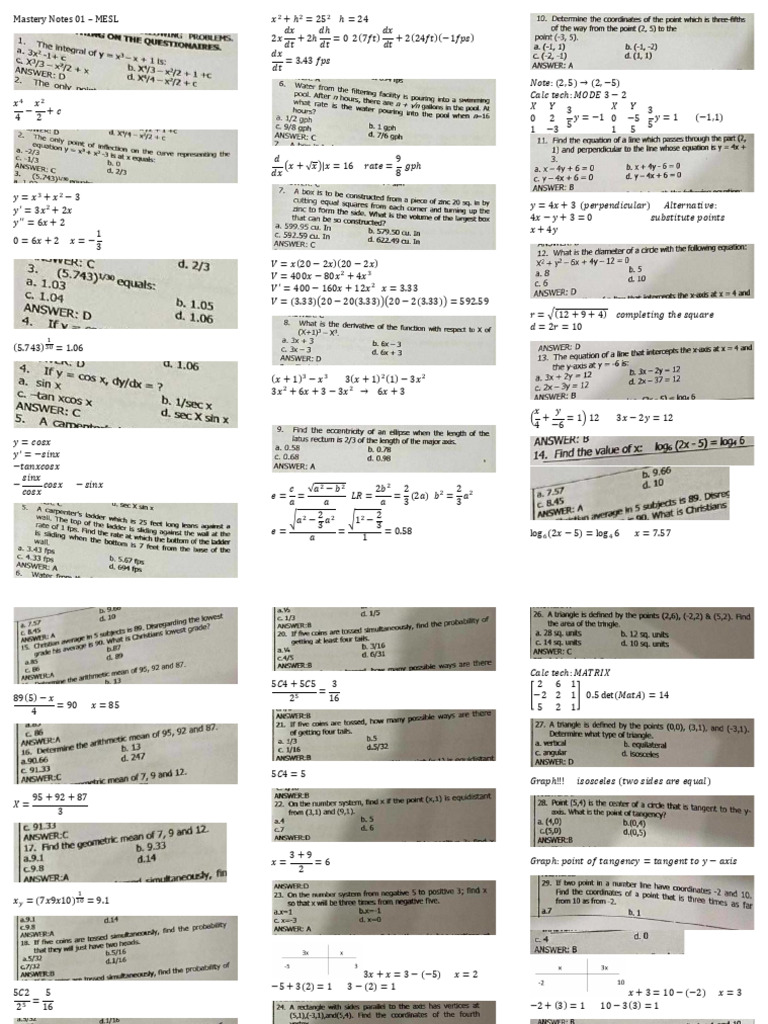 Mastery Notes 01 – MESL
FOLLOWING PROBLEMS.
ON THE QUESTIONAIRES.
1. The integral of y = x³ – x + 1 is:
a. 3x² -1+ c
b. X⁴/3 – x²/2 + 1 +c
c. X³/3 – x²/2 + x
d. X⁴/4 – x²/2 + c
ANSWER: D
2. The only point
x⁴/4 − x²/2 + c
2. The only point of inflection on the curve representing the
equation y = x³ + x² -3 is at x equals:
a. -2/3
b. 0
c. -1/3
d. 2/3
ANSWER: C
3. (5.743)1/30
y = x³ + x² − 3
y' = 3x² + 2x
y" = 6x + 2
0 = 6x + 2 x = −1/3
ANSWER: C
d. 2/3
3. (5.743)1/30 equals:
a. 1.03
b. 1.05
c. 1.04
d. 1.06
ANSWER: D
4. If y =
(5.743)^(1/30) = 1.06
d. 1.06
4. If y = cos x, dy/dx = ?
a. sin x
b. 1/sec x
c. –tan xcos x
d. sec X sin x
ANSWER: C
5. A carpenter
y = cosx
y' = −sinx
−tanxcosx
− sinx/cosx cosx − sinx
5. A carpenter's ladder which is 25 feet long leans against a
wall. The top of the ladder is sliding against the wall at the
rate of 1 fps. Find the rate at which the bottom of the ladder
is sliding when the bottom is 7 feet from the base of the
wall.
a. 3.43 fps
b. 5.67 fps
c. 4.33 fps
d. 694 fps
6. Water from
x² + h² = 25² h = 24
2x dx/dt + 2h dh/dt = 0 2(7ft) dx/dt + 2(24ft)(−1fps)
dx/dt = 3.43 fps
6. Water from the filtering facility is pouring into a swimming
pool. After n hours, there are n + √n gallons in the pool. At
what rate is the water pouring into the pool when n=16
hours?
a. 1/2 gph
b. 1 gph
c. 9/8 gph
d. 7/6 gph
ANSWER: C
d/dx (x + √x)|x = 16 rate = 9/8 gph
7. A box is to be constructed from a piece of zinc 20 sq. in by
cutting equal squares from each corner and turning up the
zinc to form the side. What is the volume of the largest box
that can be so constructed?
a. 599.95 cu. In
b. 579.50 cu. In
c. 592.59 cu. In
d. 622.49 cu. In
ANSWER: C
V = x(20 − 2x)(20 − 2x)
V = 400x − 80x² + 4x³
V' = 400 − 160x + 12x² x = 3.33
V = (3.33)(20 − 20(3.33))(20 − 2(3.33)) = 592.59
8. What is the derivative of the function with respect to X of
(X+1)³ – X³.
a. 3x + 3
b. 6x – 3
c. 3x – 3
d. 6x + 3
ANSWER: D
(x + 1)³ − x³ 3(x + 1)²(1) − 3x²
3x² + 6x + 3 − 3x² → 6x + 3
9. Find the eccentricity of an ellipse when the length of the
latus rectum is 2/3 of the length of the major axis.
a. 0.58
b. 0.78
c. 0.68
d. 0.98
ANSWER: A
e = c/a = √(a² − b²)/a LR = 2b²/a = 2/3 (2a) b² = 2/3 a²
e = √(a² − 2/3 a²)/a = √(1² − 2/3)/1 = 0.58
10. Determine the coordinates of the point which is three-fifths
of the way from the point (2, 5) to the
point (-3, 5).
a. (-1, 1)
b. (-1, -2)
c. (-2, -1)
d. (1, 1)
ANSWER: A
Note: (2,5) → (2,−5)
Calc tech: MODE 3 − 2
X Y X Y
0 2 3/5 y = −1 0 −5 3/5 y = 1 (−1,1)
1 −3 1 5
11. Find the equation of a line which passes through the part (2,
1) and perpendicular to the line whose equation is y = 4x +
3.
a. x – 4y + 6 = 0
b. x + 4y – 6 = 0
c. y – 4x + 6 = 0
d. y – 4x + 6 = 0
ANSWER: B
y = 4x + 3 (perpendicular) Alternative:
4x − y + 3 = 0 substitute points
x + 4y
12. What is the diameter of a circle with the following equation:
X² + y² – 6x + 4y – 12 = 0
a. 8
b. 5
c. 6
d. 10
ANSWER: D
that intercepts the x-axis at x = 4 and
r = √(12 + 9 + 4) completing the square
d = 2r = 10
ANSWER: D
13. The equation of a line that intercepts the x-axis at x = 4 and
the y-axis at y = -6 is:
a. 3x + 2y = 12
b. 3x – 2y = 12
c. 2x – 3y = 12
d. 2x – 37 = 12
ANSWER: B
(x/4 + y/−6 = 1) 12 3x − 2y = 12
ANSWER: B
14. Find the value of x: log₆ (2x - 5) = log₄ 6
b. 9.66
a. 7.57
d. 10
c. 8.45
ANSWER: A
average in 5 subjects is 89. Disreg
is 90. What is Christians
log₆(2x − 5) = log₄ 6 x = 7.57
b. 9.66
a. 7.57
d. 10
c. 8.45
ANSWER: A
15. Christian average in 5 subjects is 89. Disregarding the lowest
grade his average is 90. What is Christians lowest grade?
a.85
b.87
c. 86
d. 89
ANSWER: A
Determine the arithmetic mean of 95, 92 and 87.
b. 13
(89(5) − x)/4 = 90 x = 85
c. 86
ANSWER:A
16. Determine the arithmetic mean of 95, 92 and 87.
a.90.66
b. 13
c. 91.33
d. 247
ANSWER:C
metric mean of 7, 9 and 12.
X = (95 + 92 + 87)/3
c. 91.33
ANSWER:C
17. Find the geometric mean of 7, 9 and 12.
a.9.1
b. 9.33
c.9.8
d.14
ANSWER:A
simultaneously, fin
x_y = (7x9x10)^(1/10) = 9.1
a.9.1
d.14
c.9.8
ANSWER:A
18. If five coins are tossed simultaneously, find the probability
that they will just have two heads.
a.5/32
b.5/16
c.7/32
d.1/16
ANSWER:B
coins are tossed simultaneously, find the probability of
5C2/2⁵ = 5/16
d.1/16
a.½
c. 1/3
d. 1/5
ANSWER:B
20. If five coins are tossed simultaneously, find the probability of
getting at least four tails.
a.¼
b. 3/16
c.4/5
d. 6/31
ANSWER:B
how many possible ways are there
(5C4 + 5C5)/2⁵ = 3/16
ANSWER:B
21. If five coins are tossed, how many possible ways are there
of getting four tails.
a. 1/3
b.5
c. 1/16
d.5/32
ANSWER:B
is equidistant
5C4 = 5
ANSWER:B
22. On the number system, find x if the point (x,1) is equidistant
from (3,1) and (9,1).
a.4
b. 5
c.7
d. 6
ANSWER:D
x = (3 + 9)/2 = 6
ANSWER:D
23. On the number system from negative 5 to positive 3; find x
so that x will be three times from negative five.
a.x=1
b.x=-1
c. x=-3
d. x=0
ANSWER: A
3x x
-5 3
3x + x = 3 − (−5) x = 2
−5 + 3(2) = 1 3 − (2) = 1
24. A rectangle with sides parallel to the axis has vertices at
(5,1),(-3,1),and(5,4). Find the coordinates of the fourth
vertex.
26. A triangle is defined by the points (2,6), (-2,2) & (5,2). Find
the area of the tringle.
a. 28 sq. units
b. 12 sq. units
c. 14 sq. units
d. 10 sq. units
ANSWER: C
Calc tech: MATRIX
[2 6 1
−2 2 1
5 2 1] 0.5 det(MatA) = 14
27. A triangle is defined by the points (0,0), (3,1), and (-3,1).
Determine what type of triangle.
a. vertical
b. equilateral
c. angular
d. isosceles
ANSWER: D
Graph!!! isosceles (two sides are equal)
28. Point (5,4) is the center of a circle that is tangent to the y-
axis. What is the point of tangency?
a. (4,0)
b.(0,4)
c.(5,0)
d.(0,5)
ANSWER:B
Graph: point of tangency = tangent to y − axis
29. If two point in a number line have coordinates -2 and 10.
Find the coordinates of a point that is three times as far
from 10 as from -2.
a.7
b. 1
c. 4
d. 0
ANSWER: B
x 3x
-2 10
x + 3 = 10 − (−2) x = 3
−2 + (3) = 1 10 − 3(3) = 1